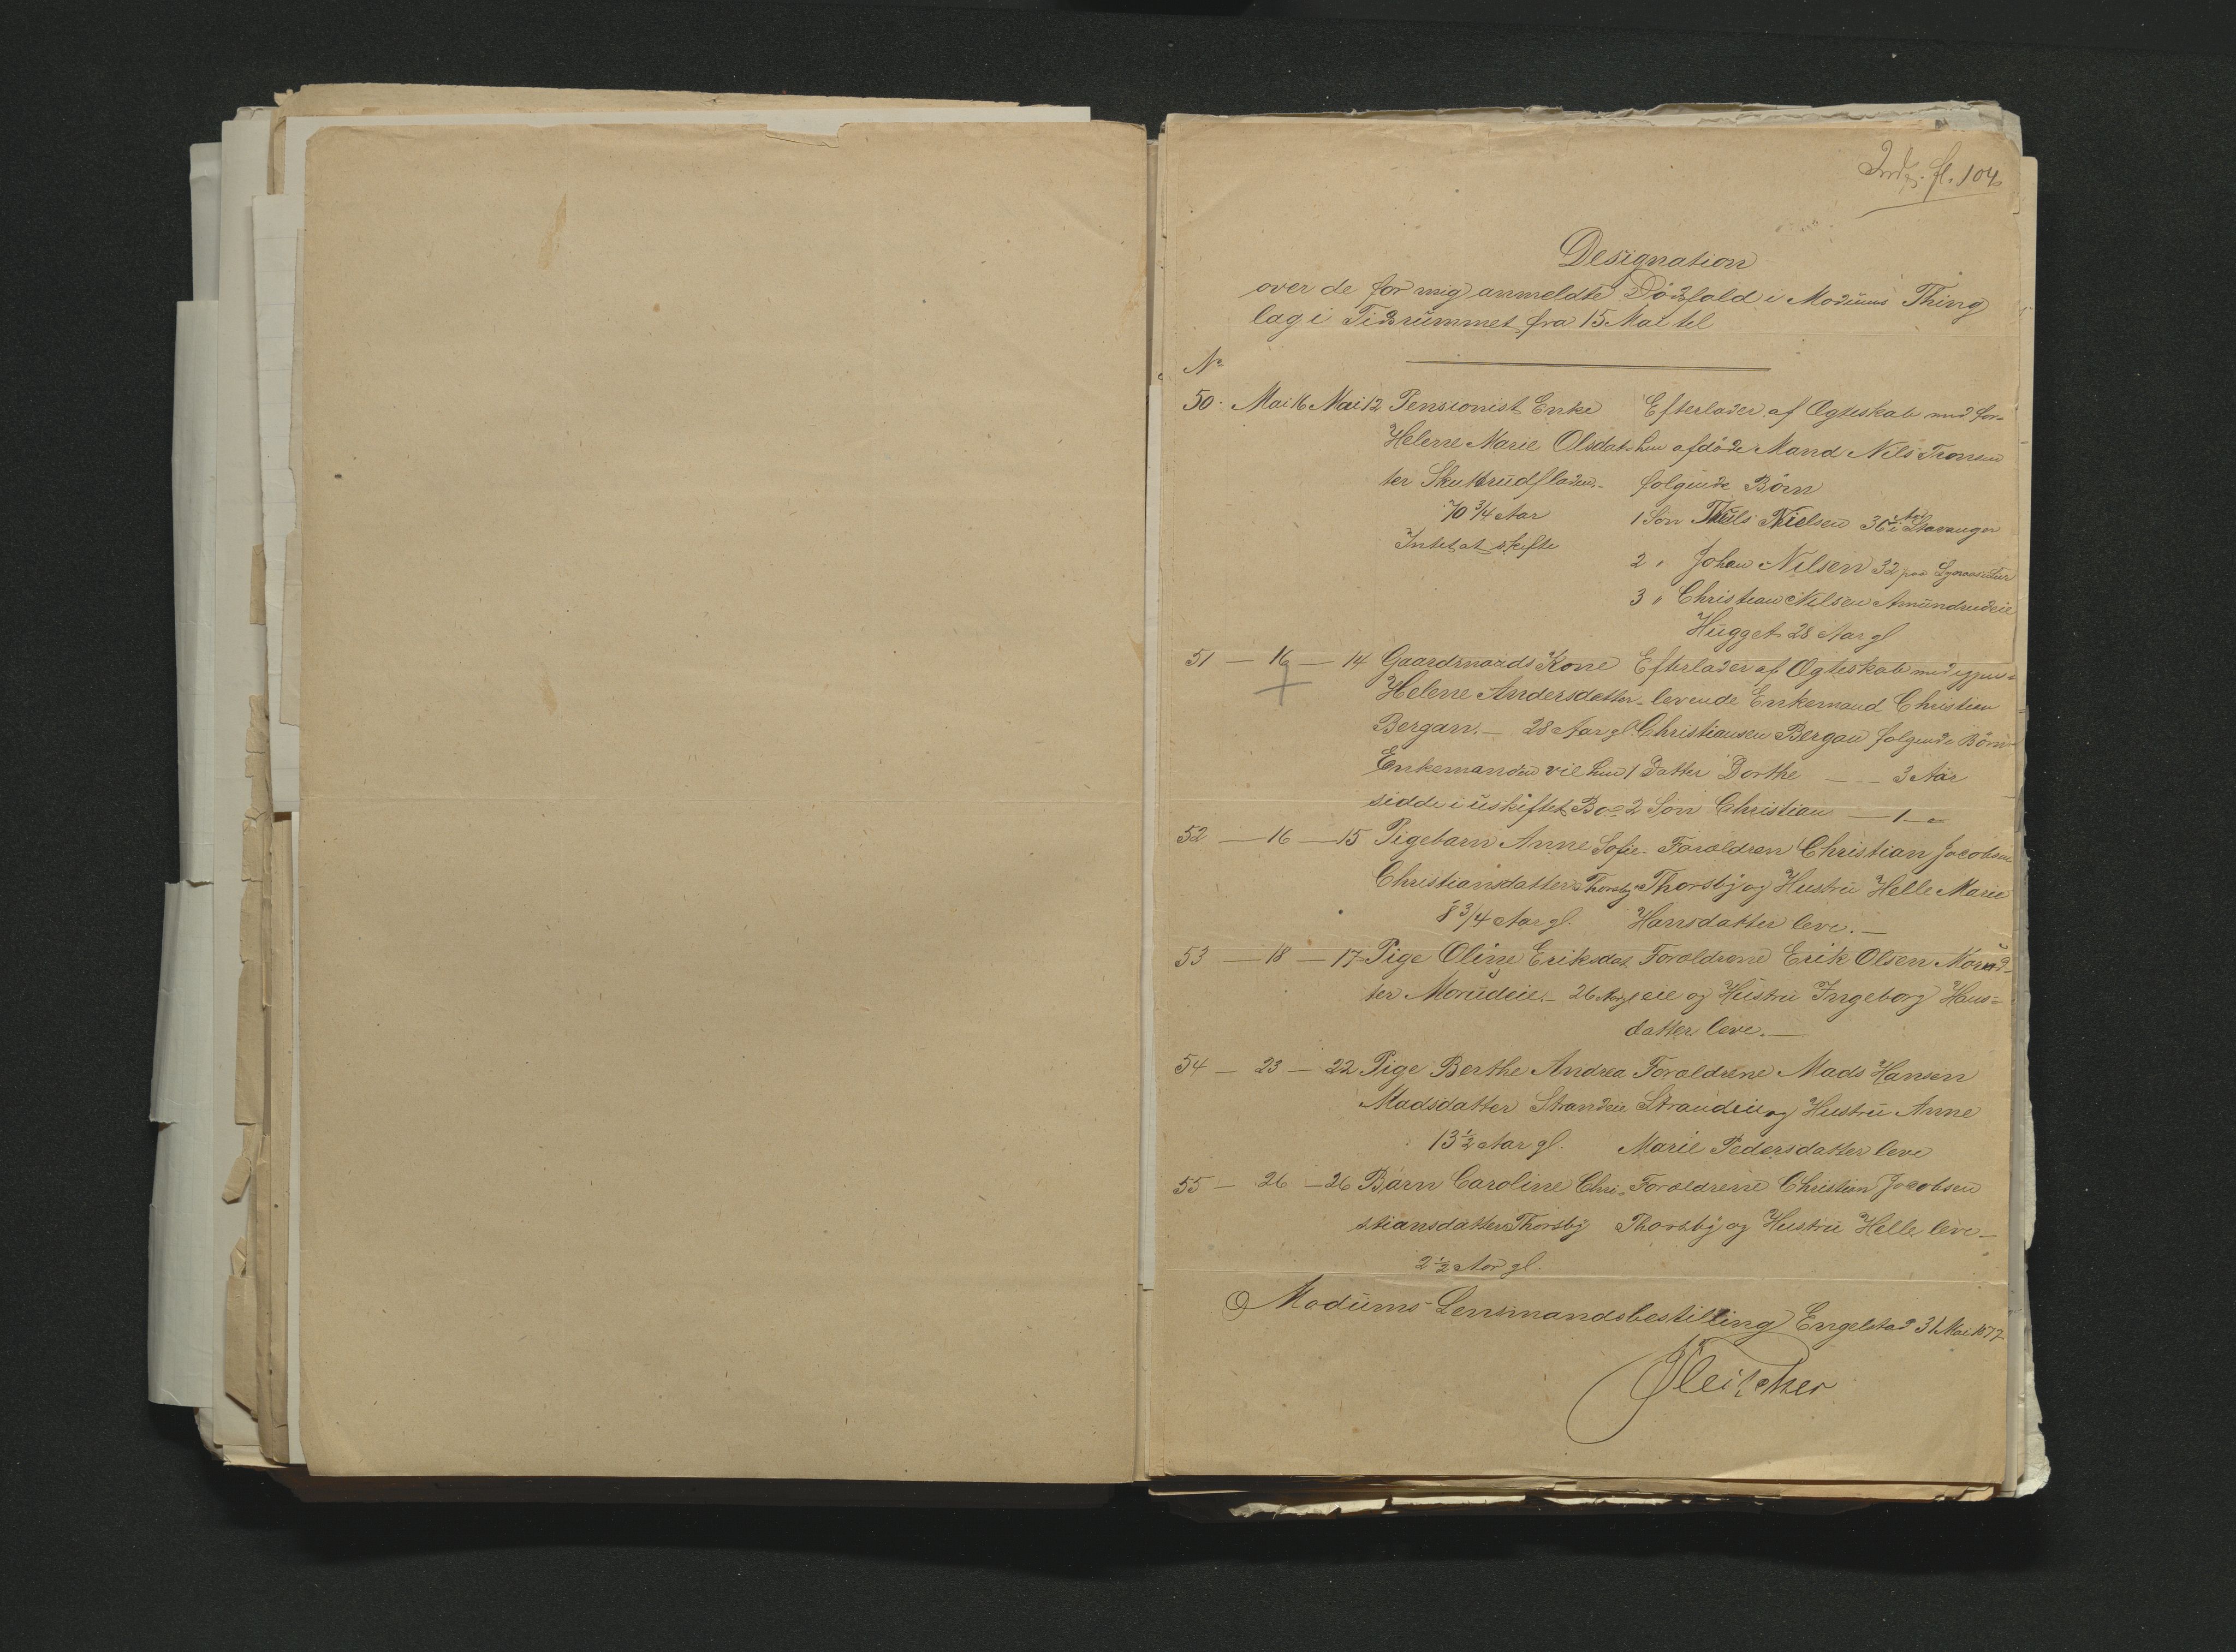 Indf. fl. 104
Designation
over de for mig anmeldte Dödsfald i Modums Thing
lag i Tidsrummet fra 15 Mai til
No
50. Mai 16 Mai 12 Pensionist Enke Efterlader af Ægteskab med for-
Helene Marie Olsdat- hen afdöde Mand Nils Tronsen
ter Skuttrudfladen.- følgende Börn
70 3/4 Aar 1 Sön Thuls Nielsen 36 Aar i Stavanger
Intet at skifte
2 " Johan Nilsen 32 paa
3 " Christian Nilsen Amundrudeie
Hugget 28 Aar gl
51 — 16 — 14 Gaardmands Kone Efterlader af Ægteskab med igjen-
Helene Andersdatter- levende Enkemand Christian
Bergan.— 28 Aar gl. Christiansen Bergan følgende Börn
Enkemanden vil hen 1 Datter Dorthe — — 3 Aar
sidde i uskiftet Bo- 2 Sön Christian — 1 — "
52 — 16 — 15 Pigebarn Anne Sofie- Forældren Christian Jacobsen
Christiansdatter Thorsby Thorsby og Hustru Helle Marie
8 3/4 Aar gl. Hansdatter leve.—
53 — 18 — 17 Pige Oline Eriksdat Forældrene Erik Olsen Morud-
ter Morudeie.- 26 Aar gl eie og Hustru Ingeborg Hans-
datter leve.—
54 — 23 — 22 Pige Berthe Andrea Forældrene Mads Hansen
Madsdatter Strandeie Strandeie og Hustru Anne
13 1/2 Aar gl. Marie Pedersdatter leve
55 — 26 — 26 Barn Caroline Chri- Forældrene Christian Jacobsen
stiansdatter Thorsby Thorsby og Hustru Helle leve—
2 1/2 Aar gl.
Modums Lensmandsbestilling Engelstad 31 Mai 1877
Fleischer